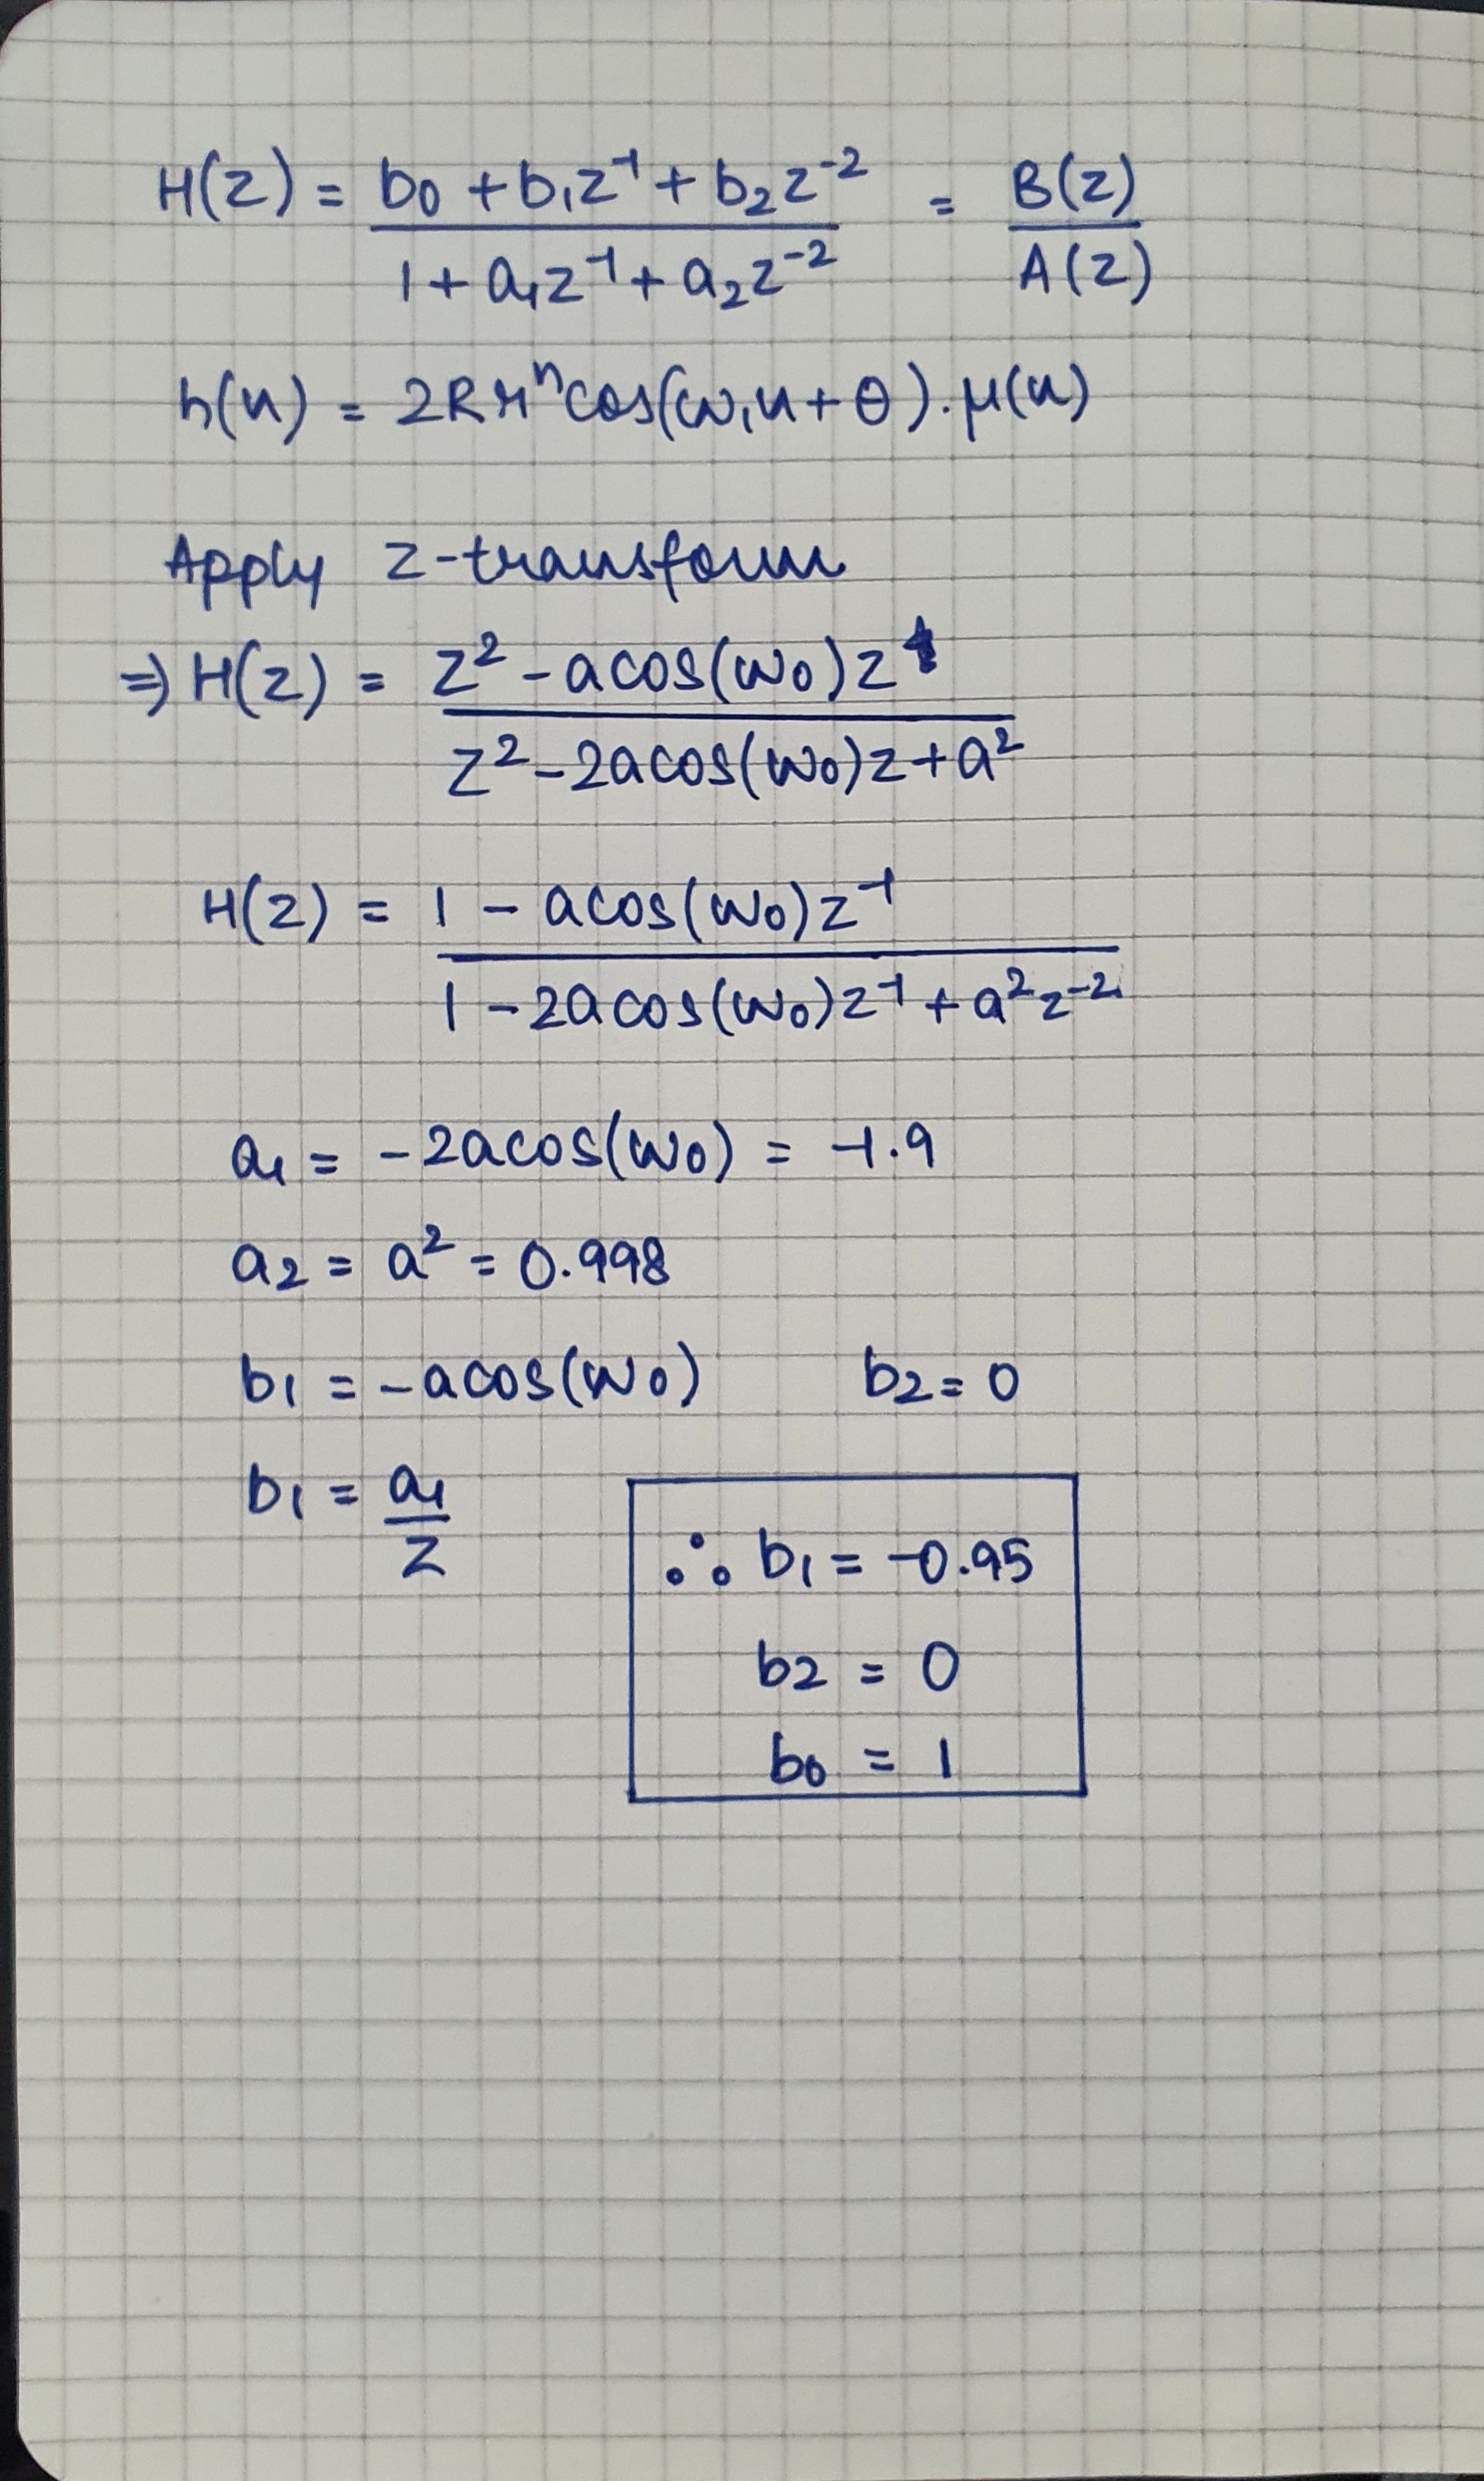 H(z) = (b₀ + b₁z⁻¹ + b₂z⁻²) / (1 + a₁z⁻¹ + a₂z⁻²) = B(z) / A(z)
h(n) = 2Rrⁿcos(ω₁n + θ).μ(n)
Apply z-transform
⇒ H(z) = (z² - acos(ω₀)z) / (z² - 2acos(ω₀)z + a²)
H(z) = (1 - acos(ω₀)z⁻¹) / (1 - 2acos(ω₀)z⁻¹ + a²z⁻²)
a₁ = -2acos(ω₀) = -1.9
a₂ = a² = 0.998
b₁ = -acos(ω₀) b₂ = 0
b₁ = a₁/2
∴ b₁ = -0.95
b₂ = 0
b₀ = 1